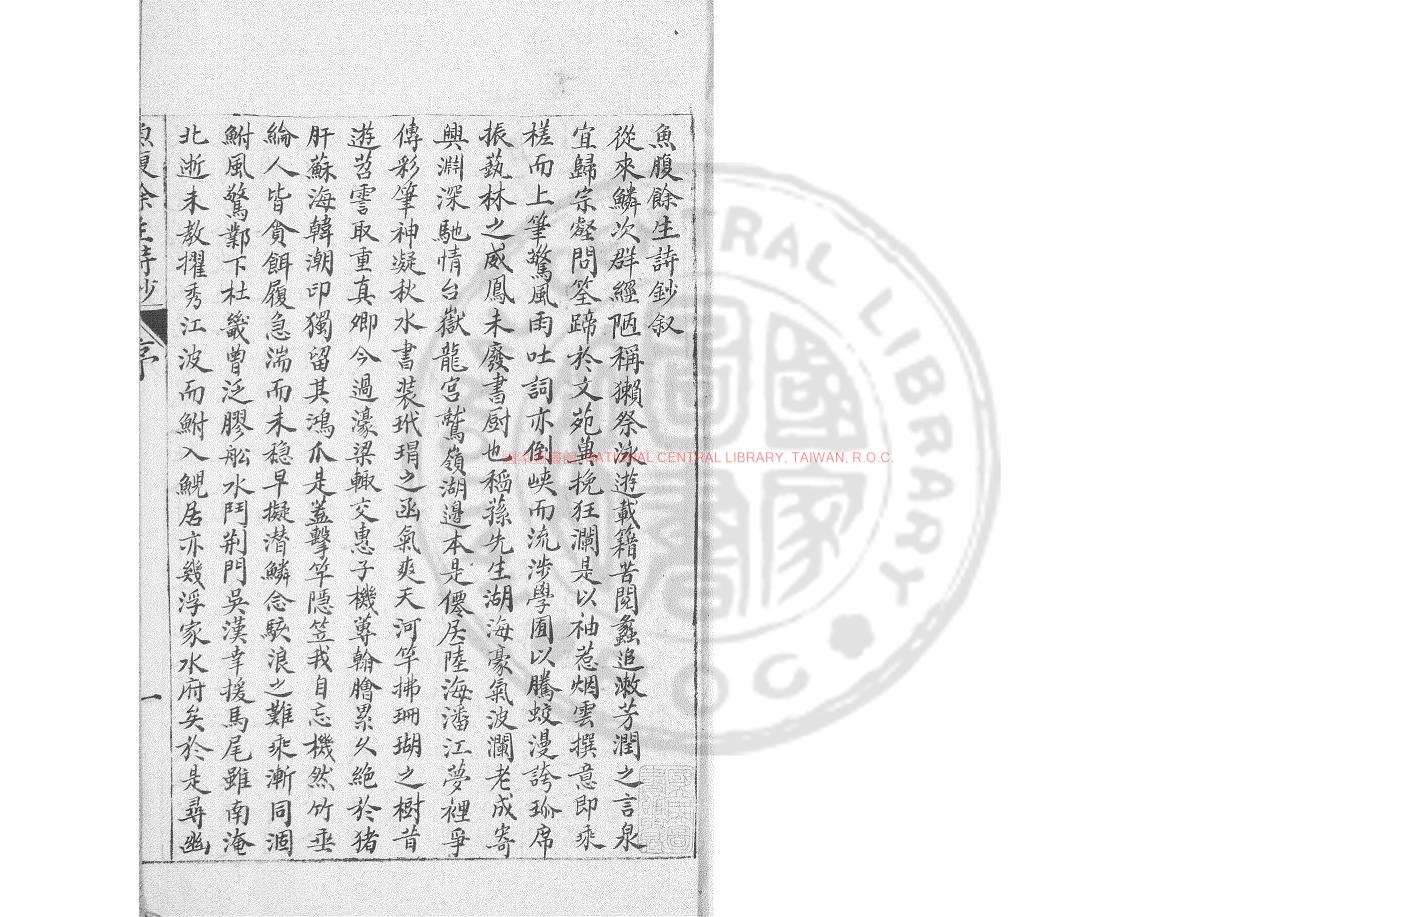 魚腹餘生詩鈔叙
從來鱗次群經陋稱獺祭泳遊載籍苦閱蠡追漱芳潤之言泉
宜歸宗壑問筌蹄於文苑葛挽狂瀾是以袖惹烟雲撰意即乘
槎而上筆驚風雨吐詞亦倒峽而流涉學圃以騰蛟漫誇珎席
振蓺林之威鳳未廢書厨也稻蓀先生湖海豪氣波瀾老成寄
興淵深馳情台嶽龍宮鷲嶺湖邊本是僊居陸海潘江夢裡爭
傳彩筆神凝秋水書裝玳瑁之函氣爽天河竿拂珊瑚之樹昔
遊苕霅取重真卿今過濠梁輒交惠子機蓴翰膾累久絕於豬
肝蘇海韓潮印獨留其鴻爪是蓋擊竿隱笠我自忘機然竹垂
綸人皆貪餌履急湍而未穏早擬潛鱗念駭浪之難乘漸同涸
鮒風驚鄴下杜畿曾泛膠船水鬥荊門吳漢幸援馬尾雖南淹
北逝未教擢秀江波而鮒入鯢居亦幾浮家水府矣於是尋幽
魚腹餘生詩鈔
序
一
國家圖書館 NATIONAL CENTRAL LIBRARY, TAIWAN, R.O.C.